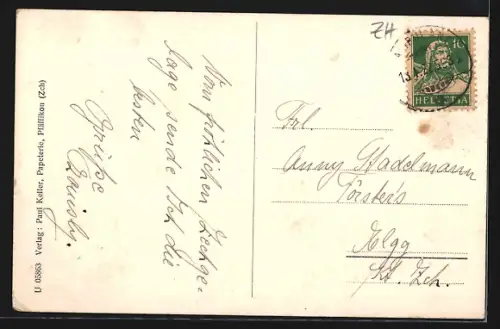 ZH
10
HELVETIA
Frl.
Anny Stadelmann
Försters
Elgg
Kt. Zch.
Vom fröhlichen Zechge-
lage sende Ich die
besten
Grüsse
U 05863 Verlag: Paul Keller, Papeterie, Pfäffikon (Zch)